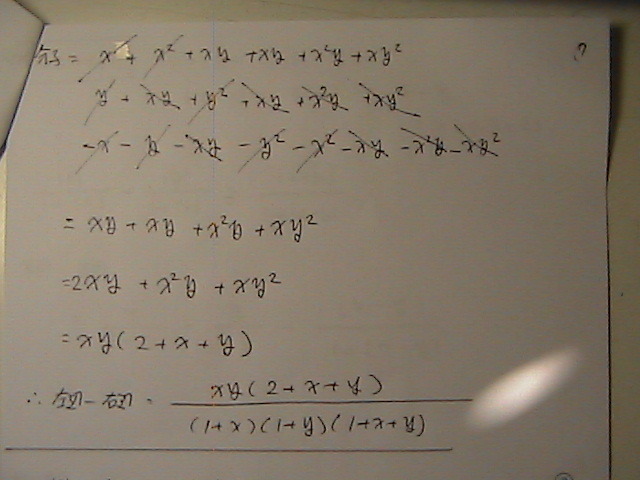 分子 = x + x² + xy + xy + x²y + xy²
y + xy + y² + xy + x²y + xy²
-x - y - xy - y² - x² - xy - x²y - xy²
= xy + xy + x²y + xy²
= 2xy + x²y + xy²
= xy(2+x+y)
∴ 左辺 - 右辺 = xy(2+x+y)
(1+x)(1+y)(1+x+y)